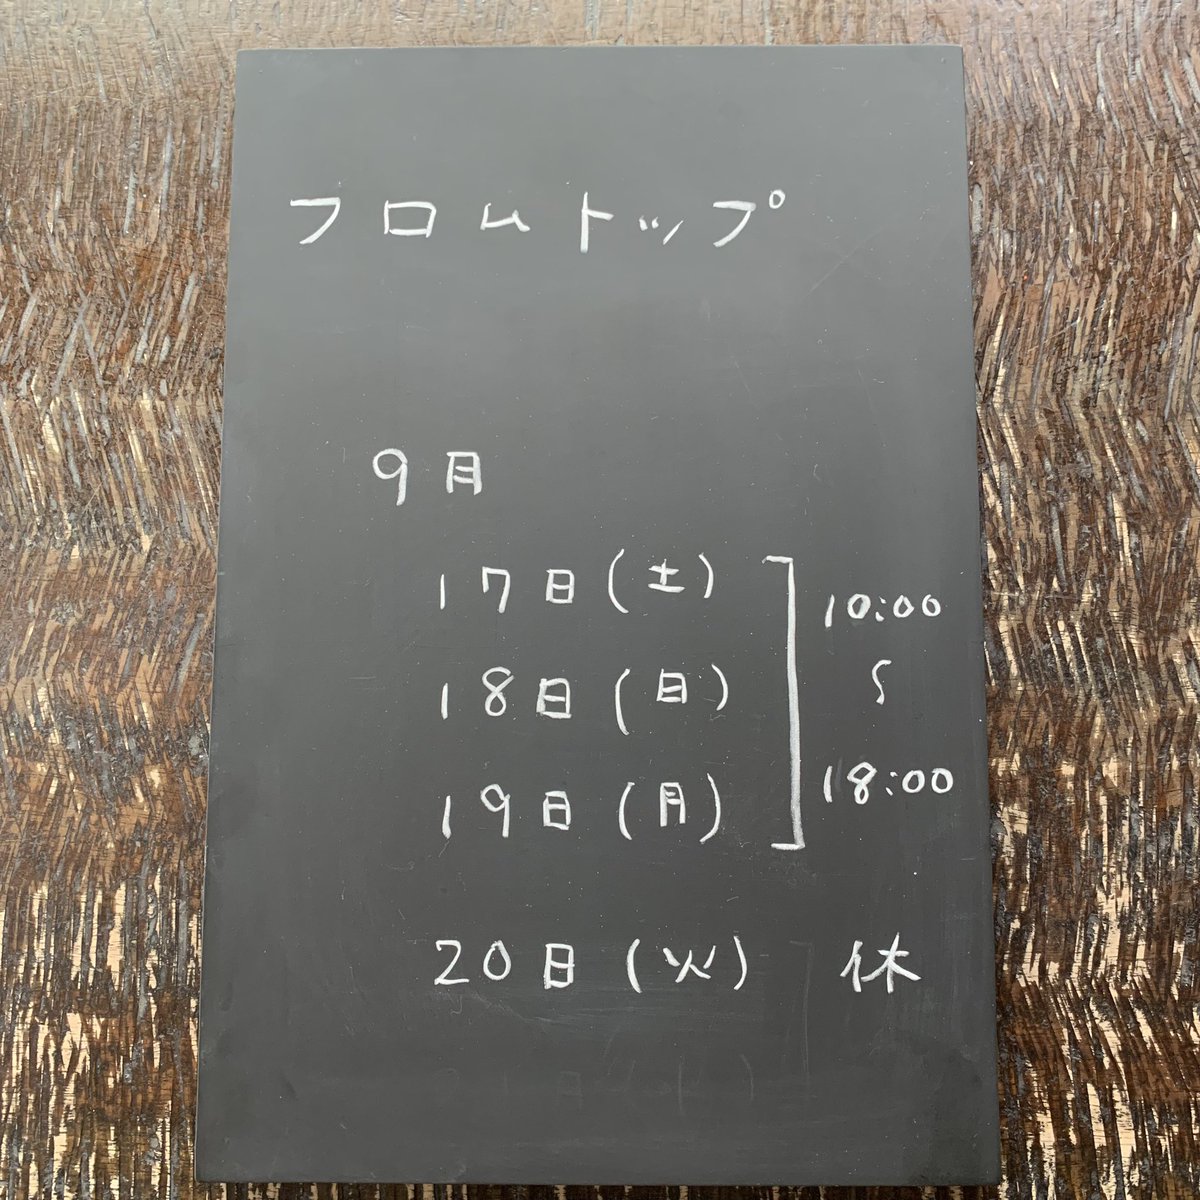 フロムトップ
9月
17日(土)
18日(日)
19日(月)
10:00
〜
18:00
20日(火) 休